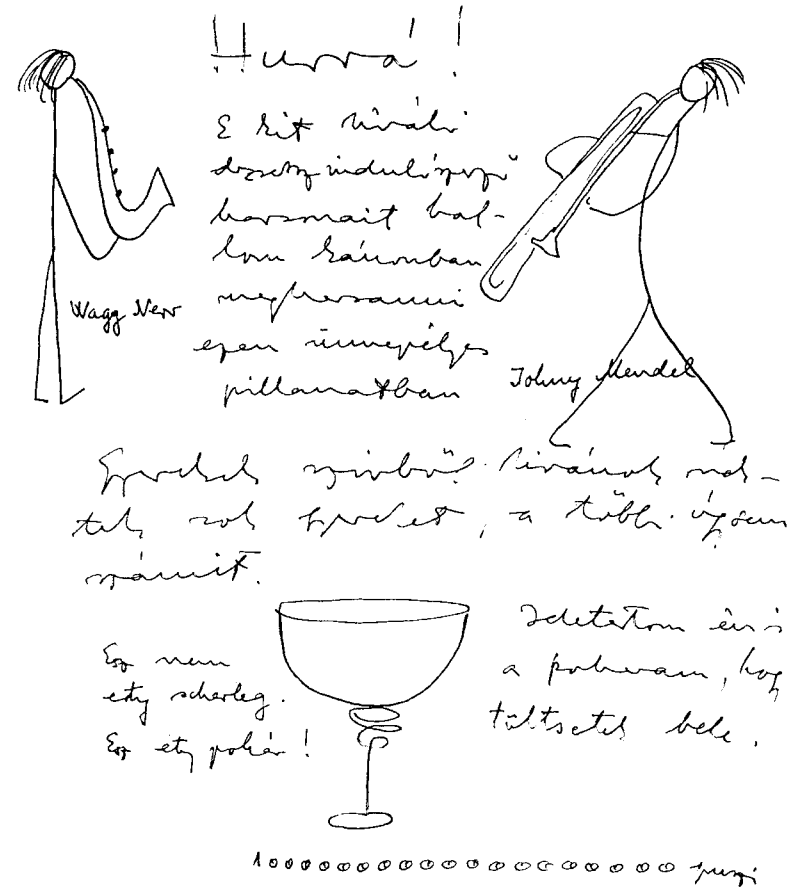 Hurrá!
E két kiváló
dzsesz induló
harsonáit hal-
lom kánonban
megharsanni
ezen ünnepélyes
pillanatban
Wagg Nerr
Johny Mendel
Gyerekek szivből kivánok nék-
tek sok gyereket, a többi úgysem
számit.
Ez nem
ety scherleg.
Ez ety pohár!
Idetartom én is
a poharam, hogy
töltsetek bele.
1000000000000000000 puszi